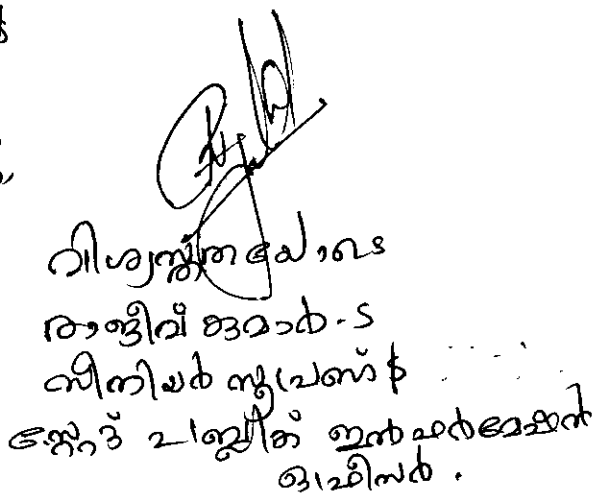 വിശ്വസ്തതയോടെ
രാജീവ് കുമാർ.S
സീനിയർ സൂപ്രണ്ട്
സ്റ്റേറ്റ് പബ്ലിക് ഇൻഫർമേഷൻ
ഓഫീസർ.